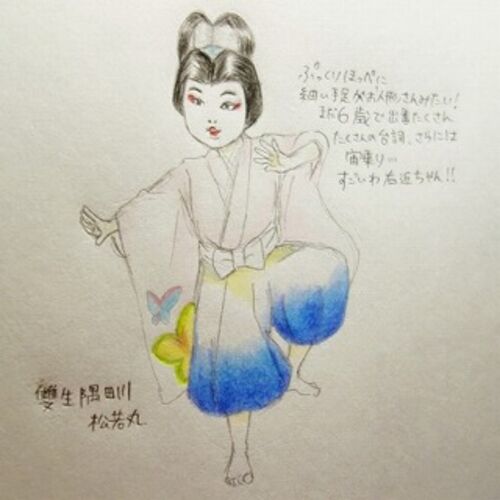 ぷっくりほっぺに
細い手足がお人形さんみたい!
まだ6歳で出番たくさん
たくさんの台詞、さらには
宙乗り…
すごいわ右近ちゃん!!
雙生隅田川
松若丸